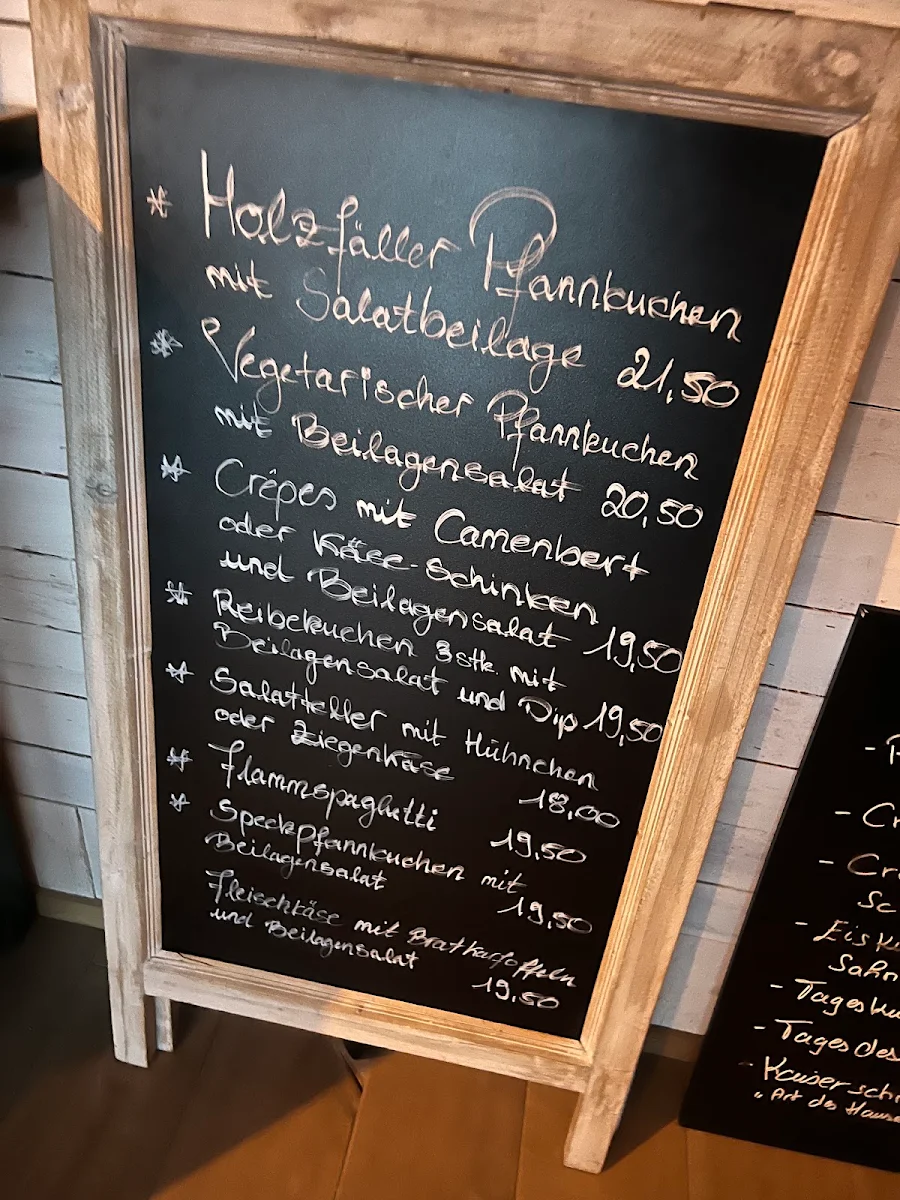 * Holzfäller Pfannkuchen
mit Salatbeilage 21,50
* Vegetarischer Pfannkuchen
mit Beilagensalat 20,50
* Crêpes mit Camenbert
oder Käse-Schinken
und Beilagensalat 19,50
* Reibekuchen 3stk. mit
Beilagensalat und Dip 19,50
* Salatteller mit Hühnchen
oder Ziegenkäse
18,00
* Flammspaghetti
19,50
* Speckpfannkuchen mit
Beilagensalat
19,50
Fleischkäse mit Bratkartoffeln
und Beilagensalat
19,50
- Cr
- Cr
Sc
- Eisk
Sahn
- Tagesku
- Tages des
- Kaiserschm
"Art des Hause